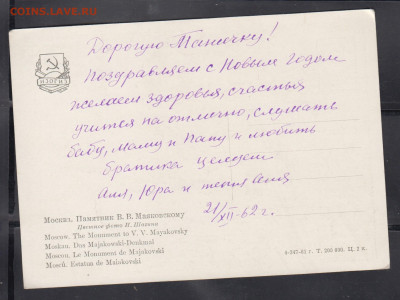 COINS.LAVE.RU
ИЗОГИЗ
Дорогую Танечку!
Поздравляем с Новым Годом
желаем здоровья, счастья
учится на отлично, слушать
бабу, маму и папу и любить
братика целуем
Аня, Юра и тётя
21/XII-62 г.
Москва. Памятник В. В. Маяковскому
Цветное фото И. Шагина
Moscow. The Monument to V. V. Mayakovsky
Moskau. Das Majakowski-Denkmal
Moscou. Le Monument de Maïakovski
Moscú. Estatua de Maiakovski